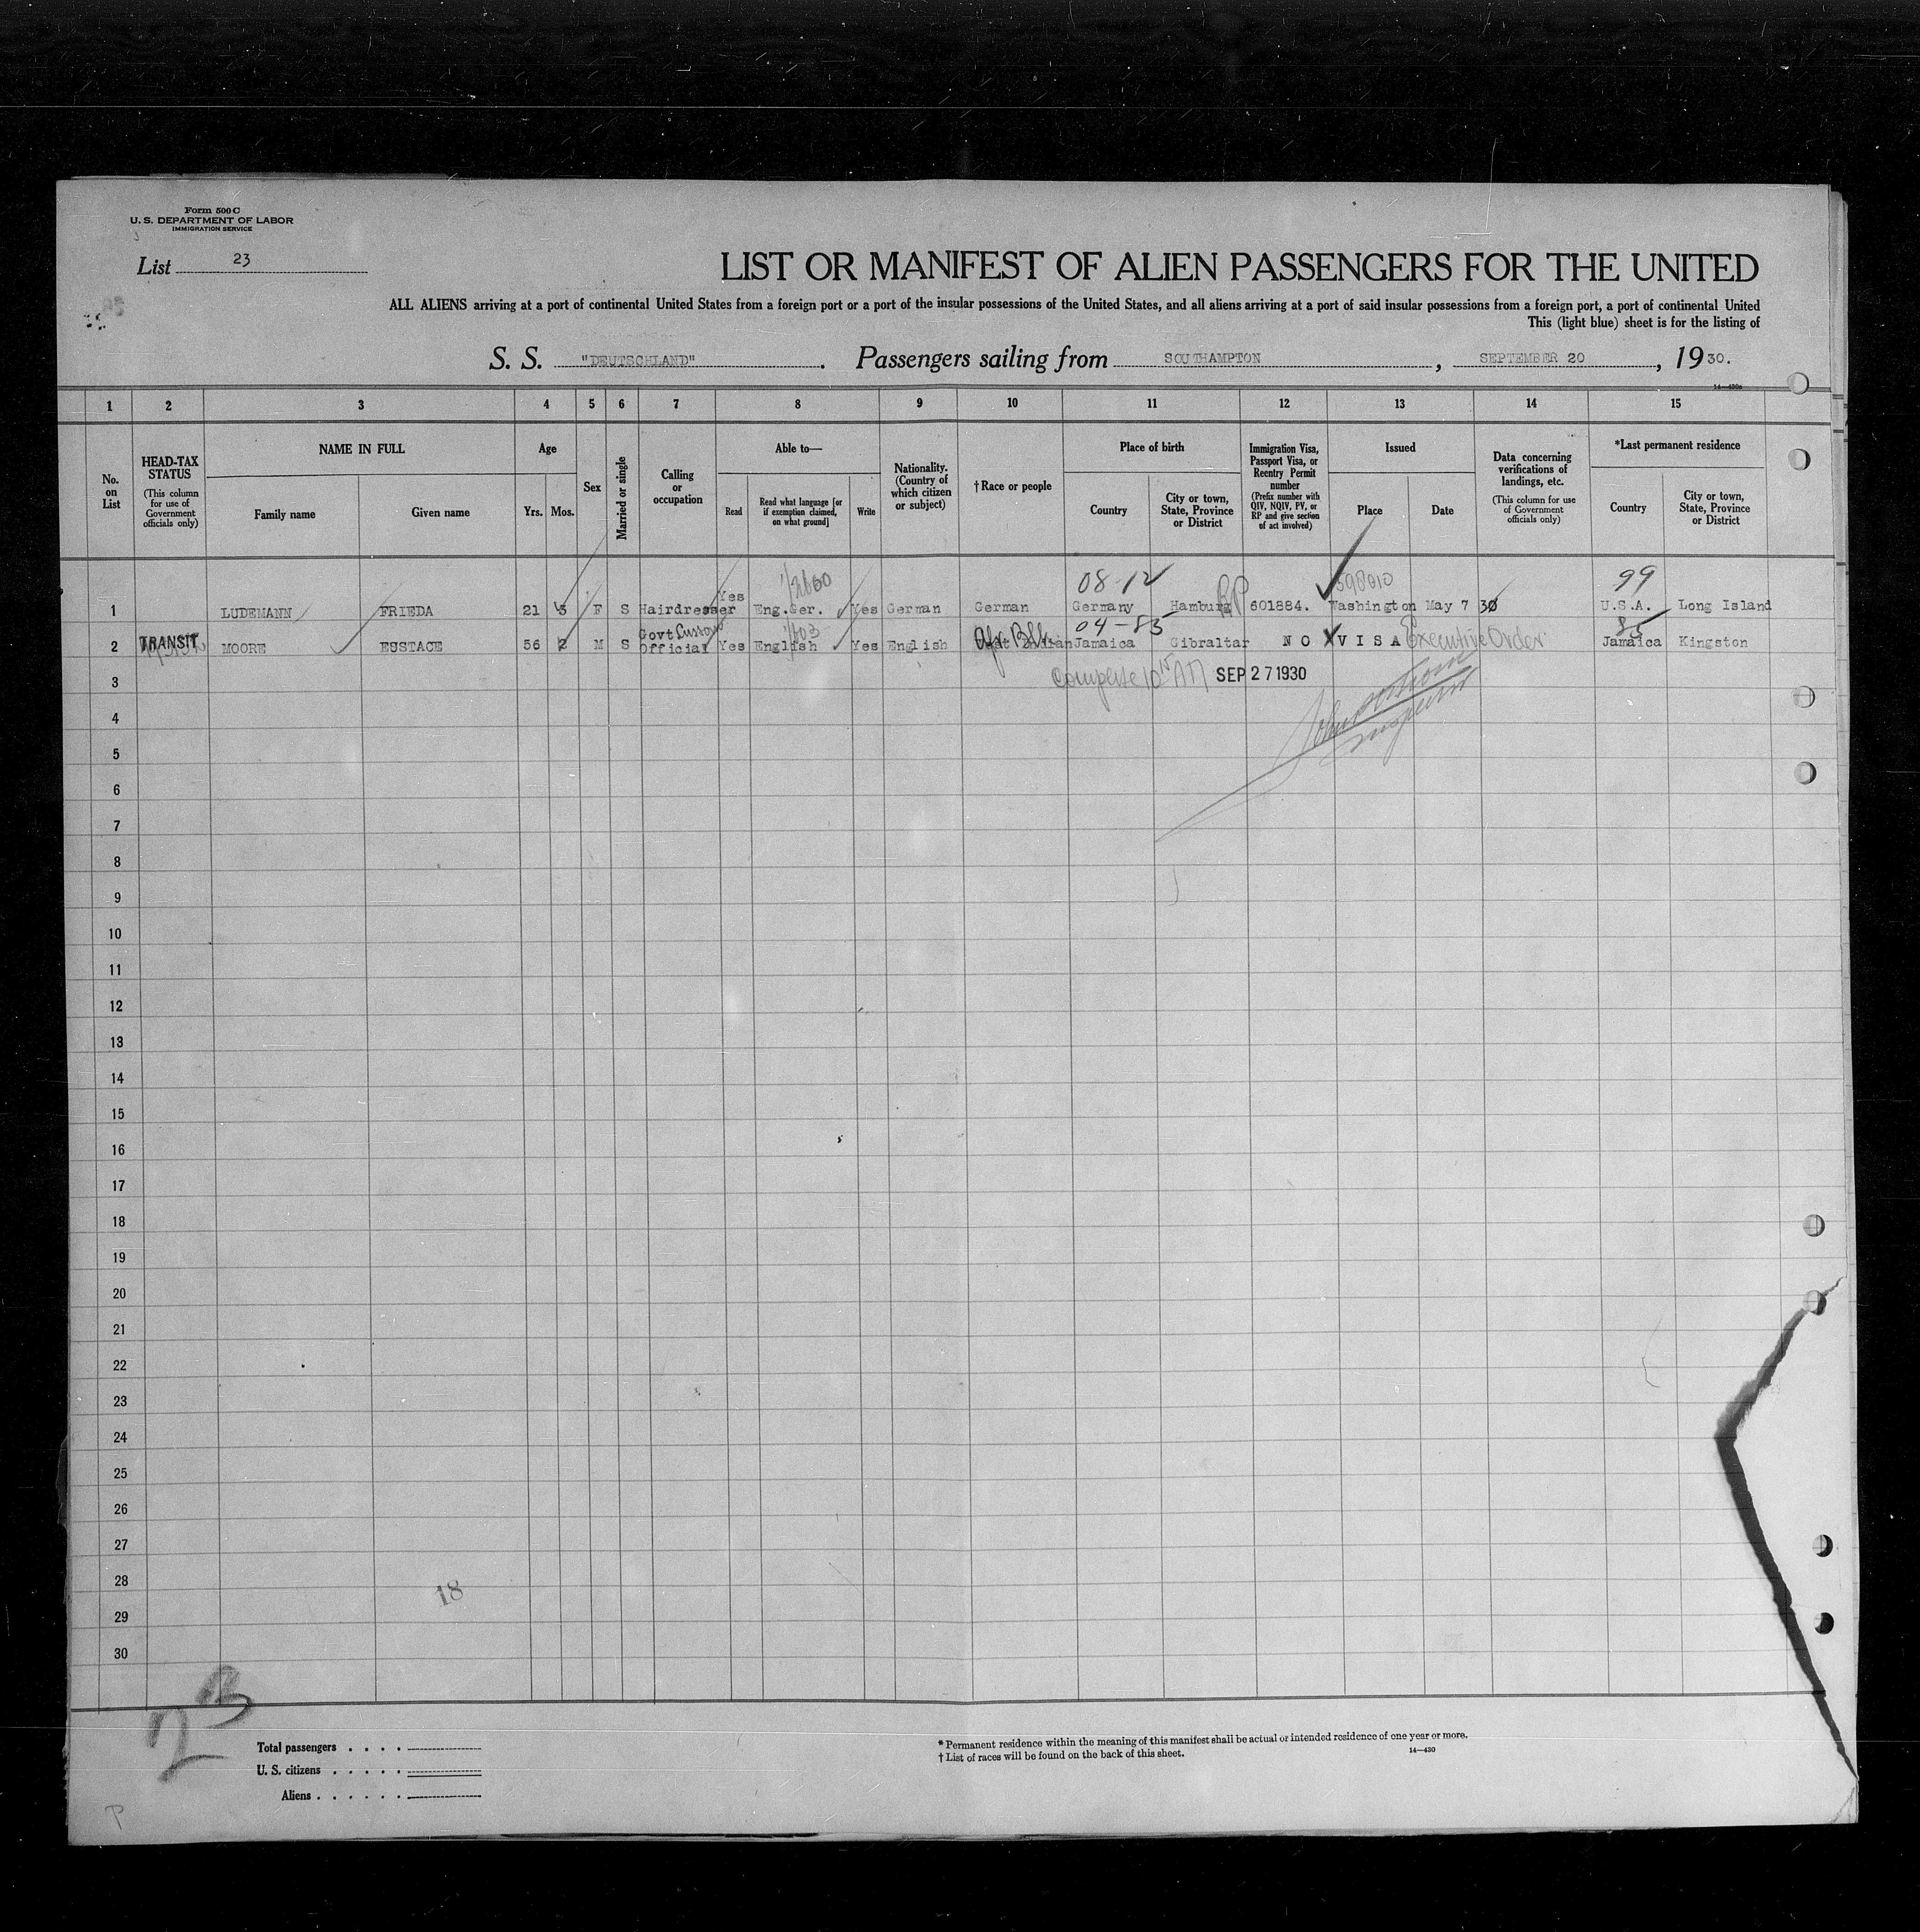 Form 500 C
U. S. DEPARTMENT OF LABOR
IMMIGRATION SERVICE
List 23
LIST OR MANIFEST OF ALIEN PASSENGERS FOR THE UNITED
ALL ALIENS arriving at a port of continental United States from a foreign port or a port of the insular possessions of the United States, and all aliens arriving at a port of said insular possessions from a foreign port, a port of continental United
This (light blue) sheet is for the listing of
S. S. "DEUTSCHLAND". Passengers sailing from SOUTHAMPTON, SEPTEMBER 20, 1930.
1 2 3 4 5 6 7 8 9 10 11 12 13 14 15
No. on List
HEAD-TAX STATUS
(This column for use of Government officials only)
NAME IN FULL
Family name Given name
Age
Yrs. Mos.
Sex
Married or single
Calling or occupation
Able to—
Read Read what language [or if exemption claimed, on what ground] Write
Nationality. (Country of which citizen or subject)
†Race or people
Place of birth
Country City or town, State, Province or District
Immigration Visa, Passport Visa, or Reentry Permit number
(Prefix number with QIV, NQIV, PV, or RP and give section of act involved)
Issued
Place Date
Data concerning verifications of landings, etc.
(This column for use of Government officials only)
*Last permanent residence
Country City or town, State, Province or District
08-12 99
1 LUDEMANN FRIEDA 21 3 F S Hairdresser Yes Eng.Ger. Yes German German Germany Hamburg RP 601884. Washington May 7 30 U.S.A. Long Island
04-85 85
2 TRANSIT MOORE EUSTACE 56 2 M S Govt Official Yes English Yes English Jamaica Gibraltar NO VISA Executive Order Jamaica Kingston
3 Complete 10 AM SEP 27 1930
4
5
6
7
8
9
10
11
12
13
14
15
16
17
18
19
20
21
22
23
24
25
26
27
28
29
30
18
Total passengers
U. S. citizens
Aliens
* Permanent residence within the meaning of this manifest shall be actual or intended residence of one year or more.
† List of races will be found on the back of this sheet.
14—430